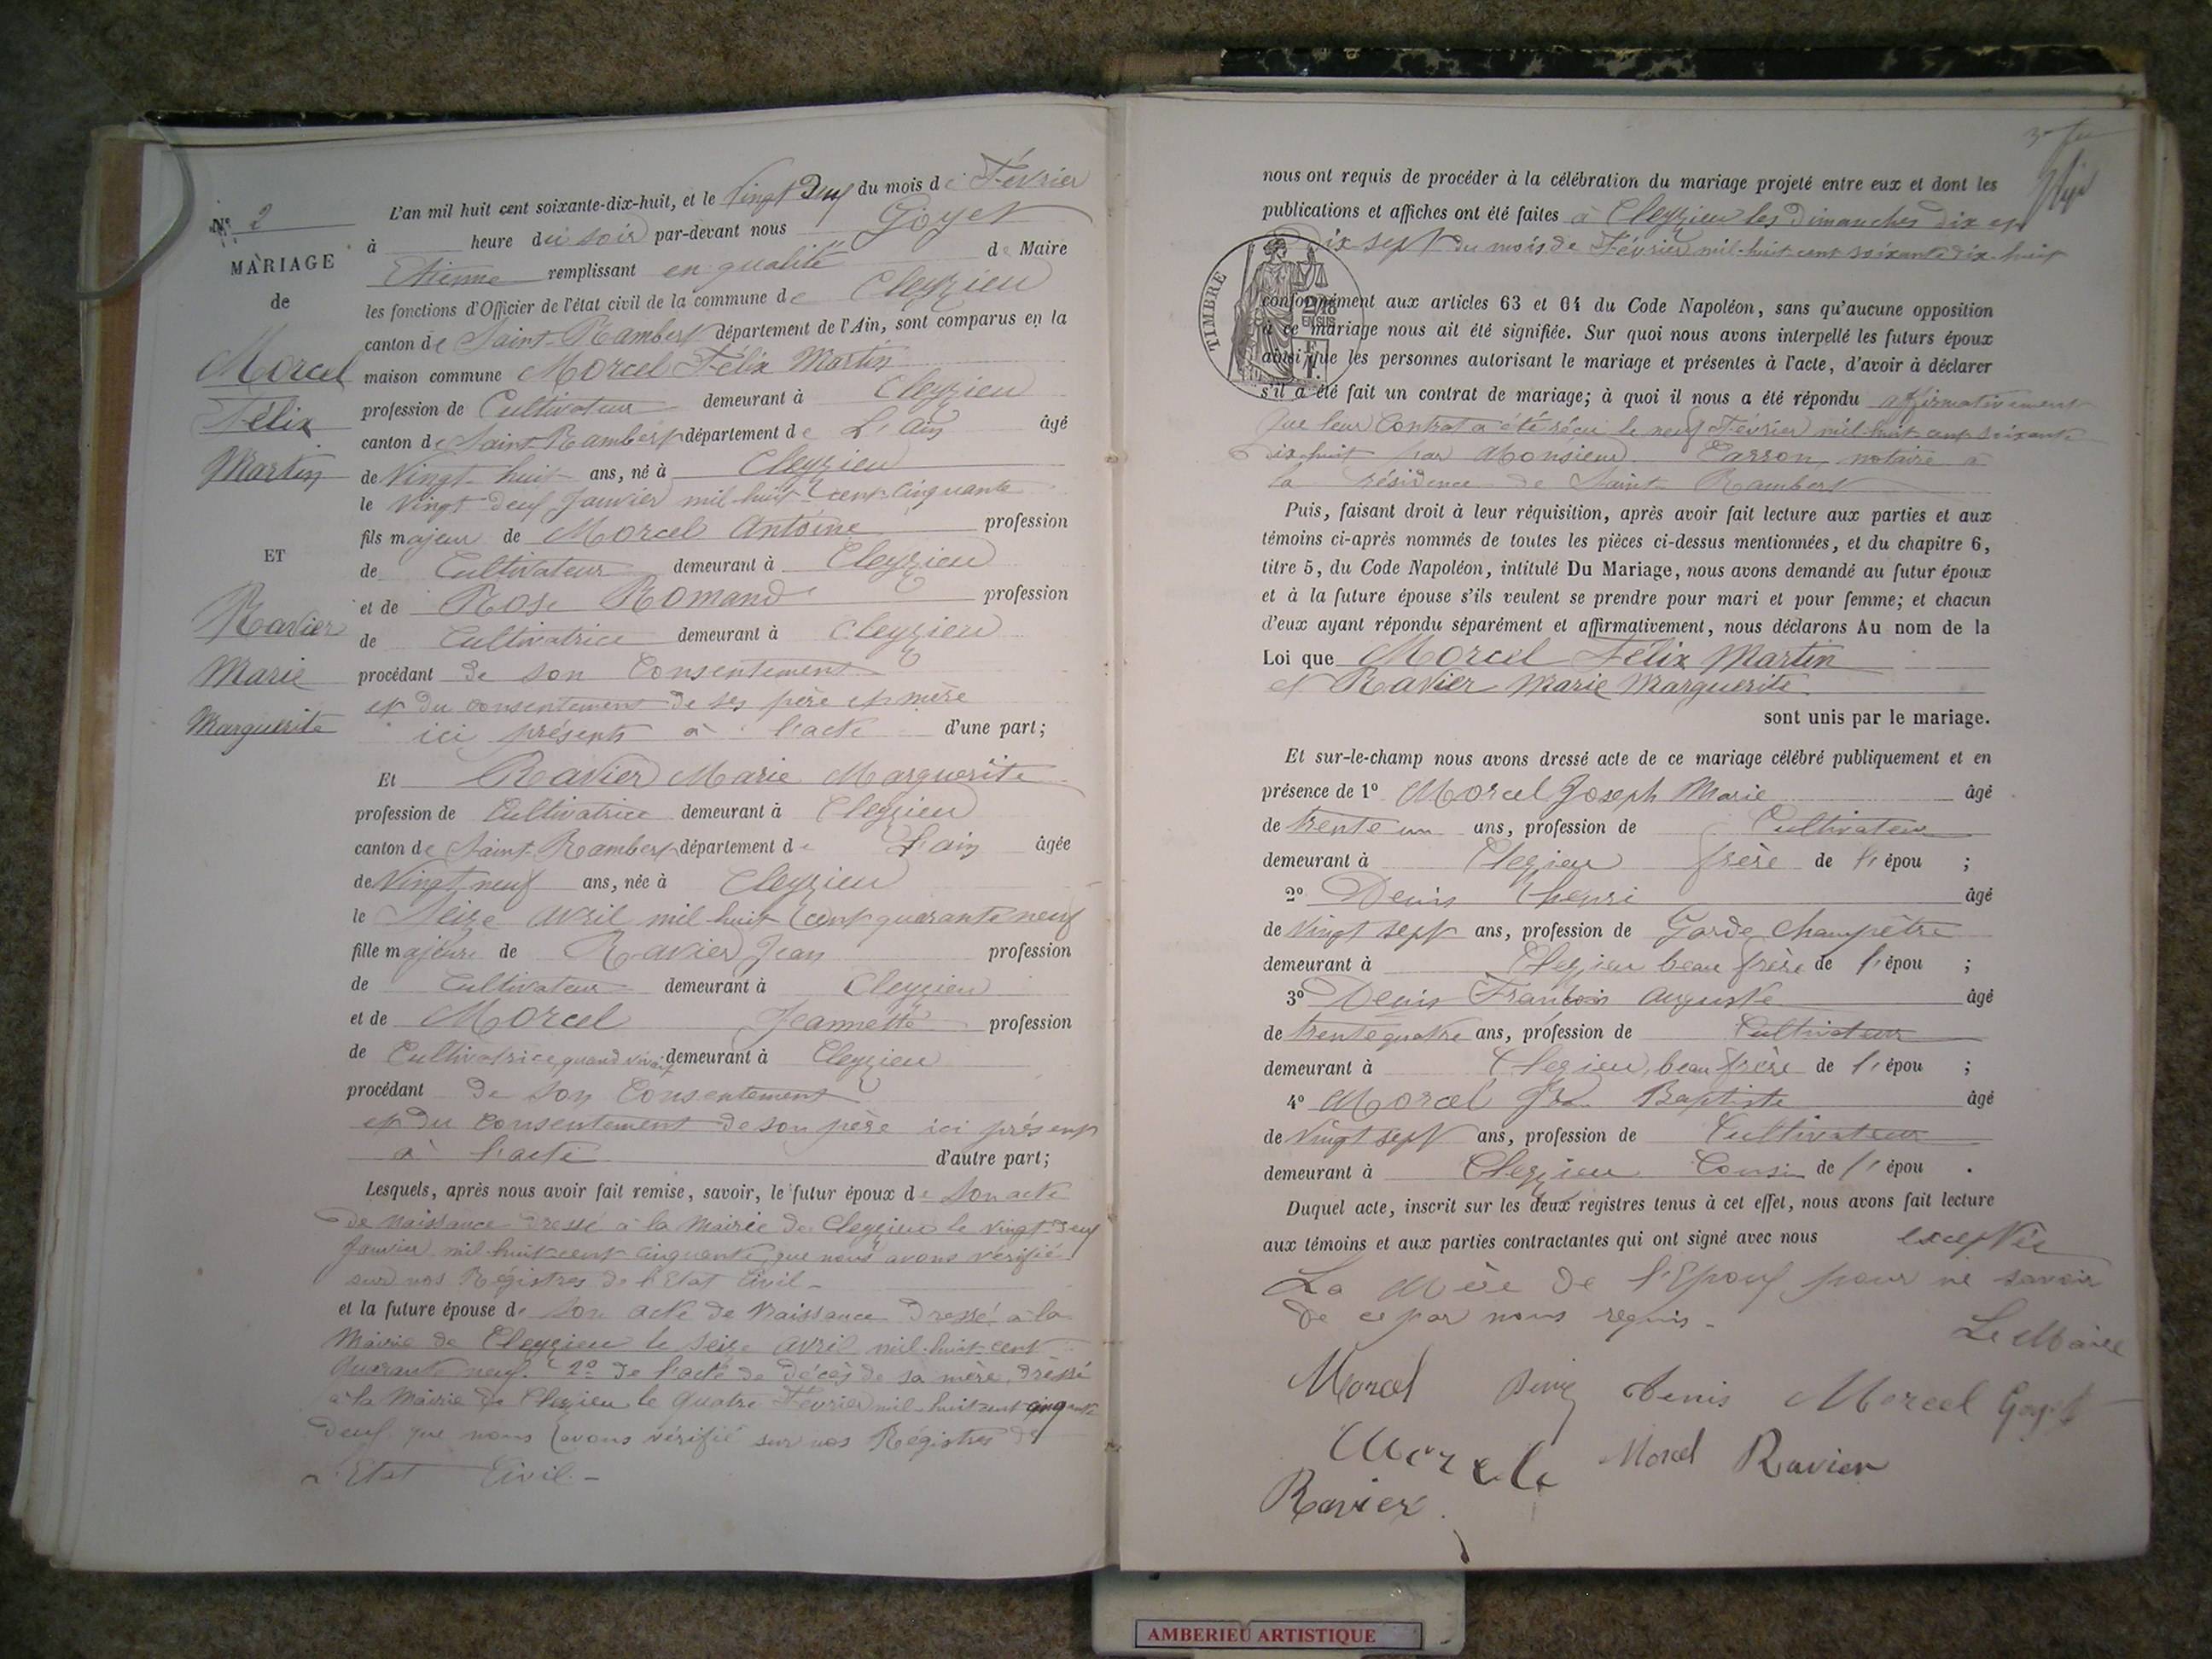 N° 2
MARIAGE
de
Morcel
Félix
Martin
ET
Ravier
Marie
Marguerite
L'an mil huit cent soixante-dix-huit, et le Vingt Deux du mois de Février
à heure du soir par-devant nous Goyet
Etienne remplissant en qualité de Maire
les fonctions d'Officier de l'état civil de la commune de Cleyzieu
canton de Saint-Rambert département de l'Ain, sont comparus en la
maison commune Morcel Félix Martin
profession de Cultivateur demeurant à Cleyzieu
canton de Saint-Rambert département de L'ain âgé
de Vingt huit ans, né à Cleyzieu
le Vingt deux Janvier mil huit cent cinquante
fils majeur de Morcel Antoine profession
de Cultivateur demeurant à Cleyzieu
et de Rose Romand profession
de Cultivatrice demeurant à Cleyzieu
procédant de son Consentement
et du consentement de ses père et mère
ici présents à l'acte d'une part;
Et Ravier Marie Marguerite
profession de Cultivatrice demeurant à Cleyzieu
canton de Saint-Rambert département de L'ain âgée
de Vingt neuf ans, née à Cleyzieu
le Seize avril mil huit cent quarante neuf
fille majeure de Ravier Jean profession
de Cultivateur demeurant à Cleyzieu
et de Morcel Jeannette profession
de Cultivatrice quand vivait demeurant à Cleyzieu
procédant de son Consentement
et du consentement de son père ici présent
à l'acte d'autre part;
Lesquels, après nous avoir fait remise, savoir, le futur époux de Son acte
de naissance dressé à la Mairie de Cleyzieu le vingt-deux
Janvier mil-huit-cent cinquante, que nous avons vérifié
sur nos Régistres de l'Etat Civil -
et la future épouse de Son acte de Naissance Dressé à la
Mairie de Cleyzieu le seize avril mil-huit-cent
quarante neuf. 2° de l'acte de décès de sa mère, dressé
à la Mairie de Cleyzieu le quatre Février mil-huit-cent cinquante
deux que nous avons vérifié sur nos Régistres de
l'Etat Civil -
nous ont requis de procéder à la célébration du mariage projeté entre eux et dont les
publications et affiches ont été faites à Cleyzieu les Dimanches dix et
Dix-sept du mois de Février mil-huit-cent soixante dix-huit
TIMBRE
conformément aux articles 63 et 64 du Code Napoléon, sans qu'aucune opposition
à ce mariage nous ait été signifiée. Sur quoi nous avons interpellé les futurs époux
ainsi que les personnes autorisant le mariage et présentes à l'acte, d'avoir à déclarer
s'il a été fait un contrat de mariage; à quoi il nous a été répondu affirmativement
Que leur Contrat a été récu le neuf Février mil-huit-cent soixante
Dix-huit par Monsieur notaire à
la résidence de Saint-Rambert
Puis, faisant droit à leur réquisition, après avoir fait lecture aux parties et aux
témoins ci-après nommés de toutes les pièces ci-dessus mentionnées, et du chapitre 6,
titre 5, du Code Napoléon, intitulé Du Mariage, nous avons demandé au futur époux
et à la future épouse s'ils veulent se prendre pour mari et pour femme; et chacun
d'eux ayant répondu séparément et affirmativement, nous déclarons Au nom de la
Loi que Morcel Félix Martin
et Ravier Marie Marguerite
sont unis par le mariage.
Et sur-le-champ nous avons dressé acte de ce mariage célébré publiquement et en
présence de 1° Morcel Joseph Marie âgé
de trente un ans, profession de Cultivateur
demeurant à Cleyzieu frère de l'épou ;
2° Denis Henri âgé
de Vingt sept ans, profession de Garde Champêtre
demeurant à Cleyzieu beau frère de l'épou ;
3° Denis François Auguste âgé
de trente quatre ans, profession de Cultivateur
demeurant à Cleyzieu, beau frère de l'épou ;
4° Morcel Baptiste âgé
de Vingt sept ans, profession de Cultivateur
demeurant à Cleyzieu Cousin de l'épou .
Duquel acte, inscrit sur les deux registres tenus à cet effet, nous avons fait lecture
aux témoins et aux parties contractantes qui ont signé avec nous exceptée
La Mère de l'Epoux pour ne savoir
de ce par nous requis -
Le Maire
Morcel Denis Morcel Goyet
Morcel Morel Ravier
Ravier
AMBERIEU ARTISTIQUE